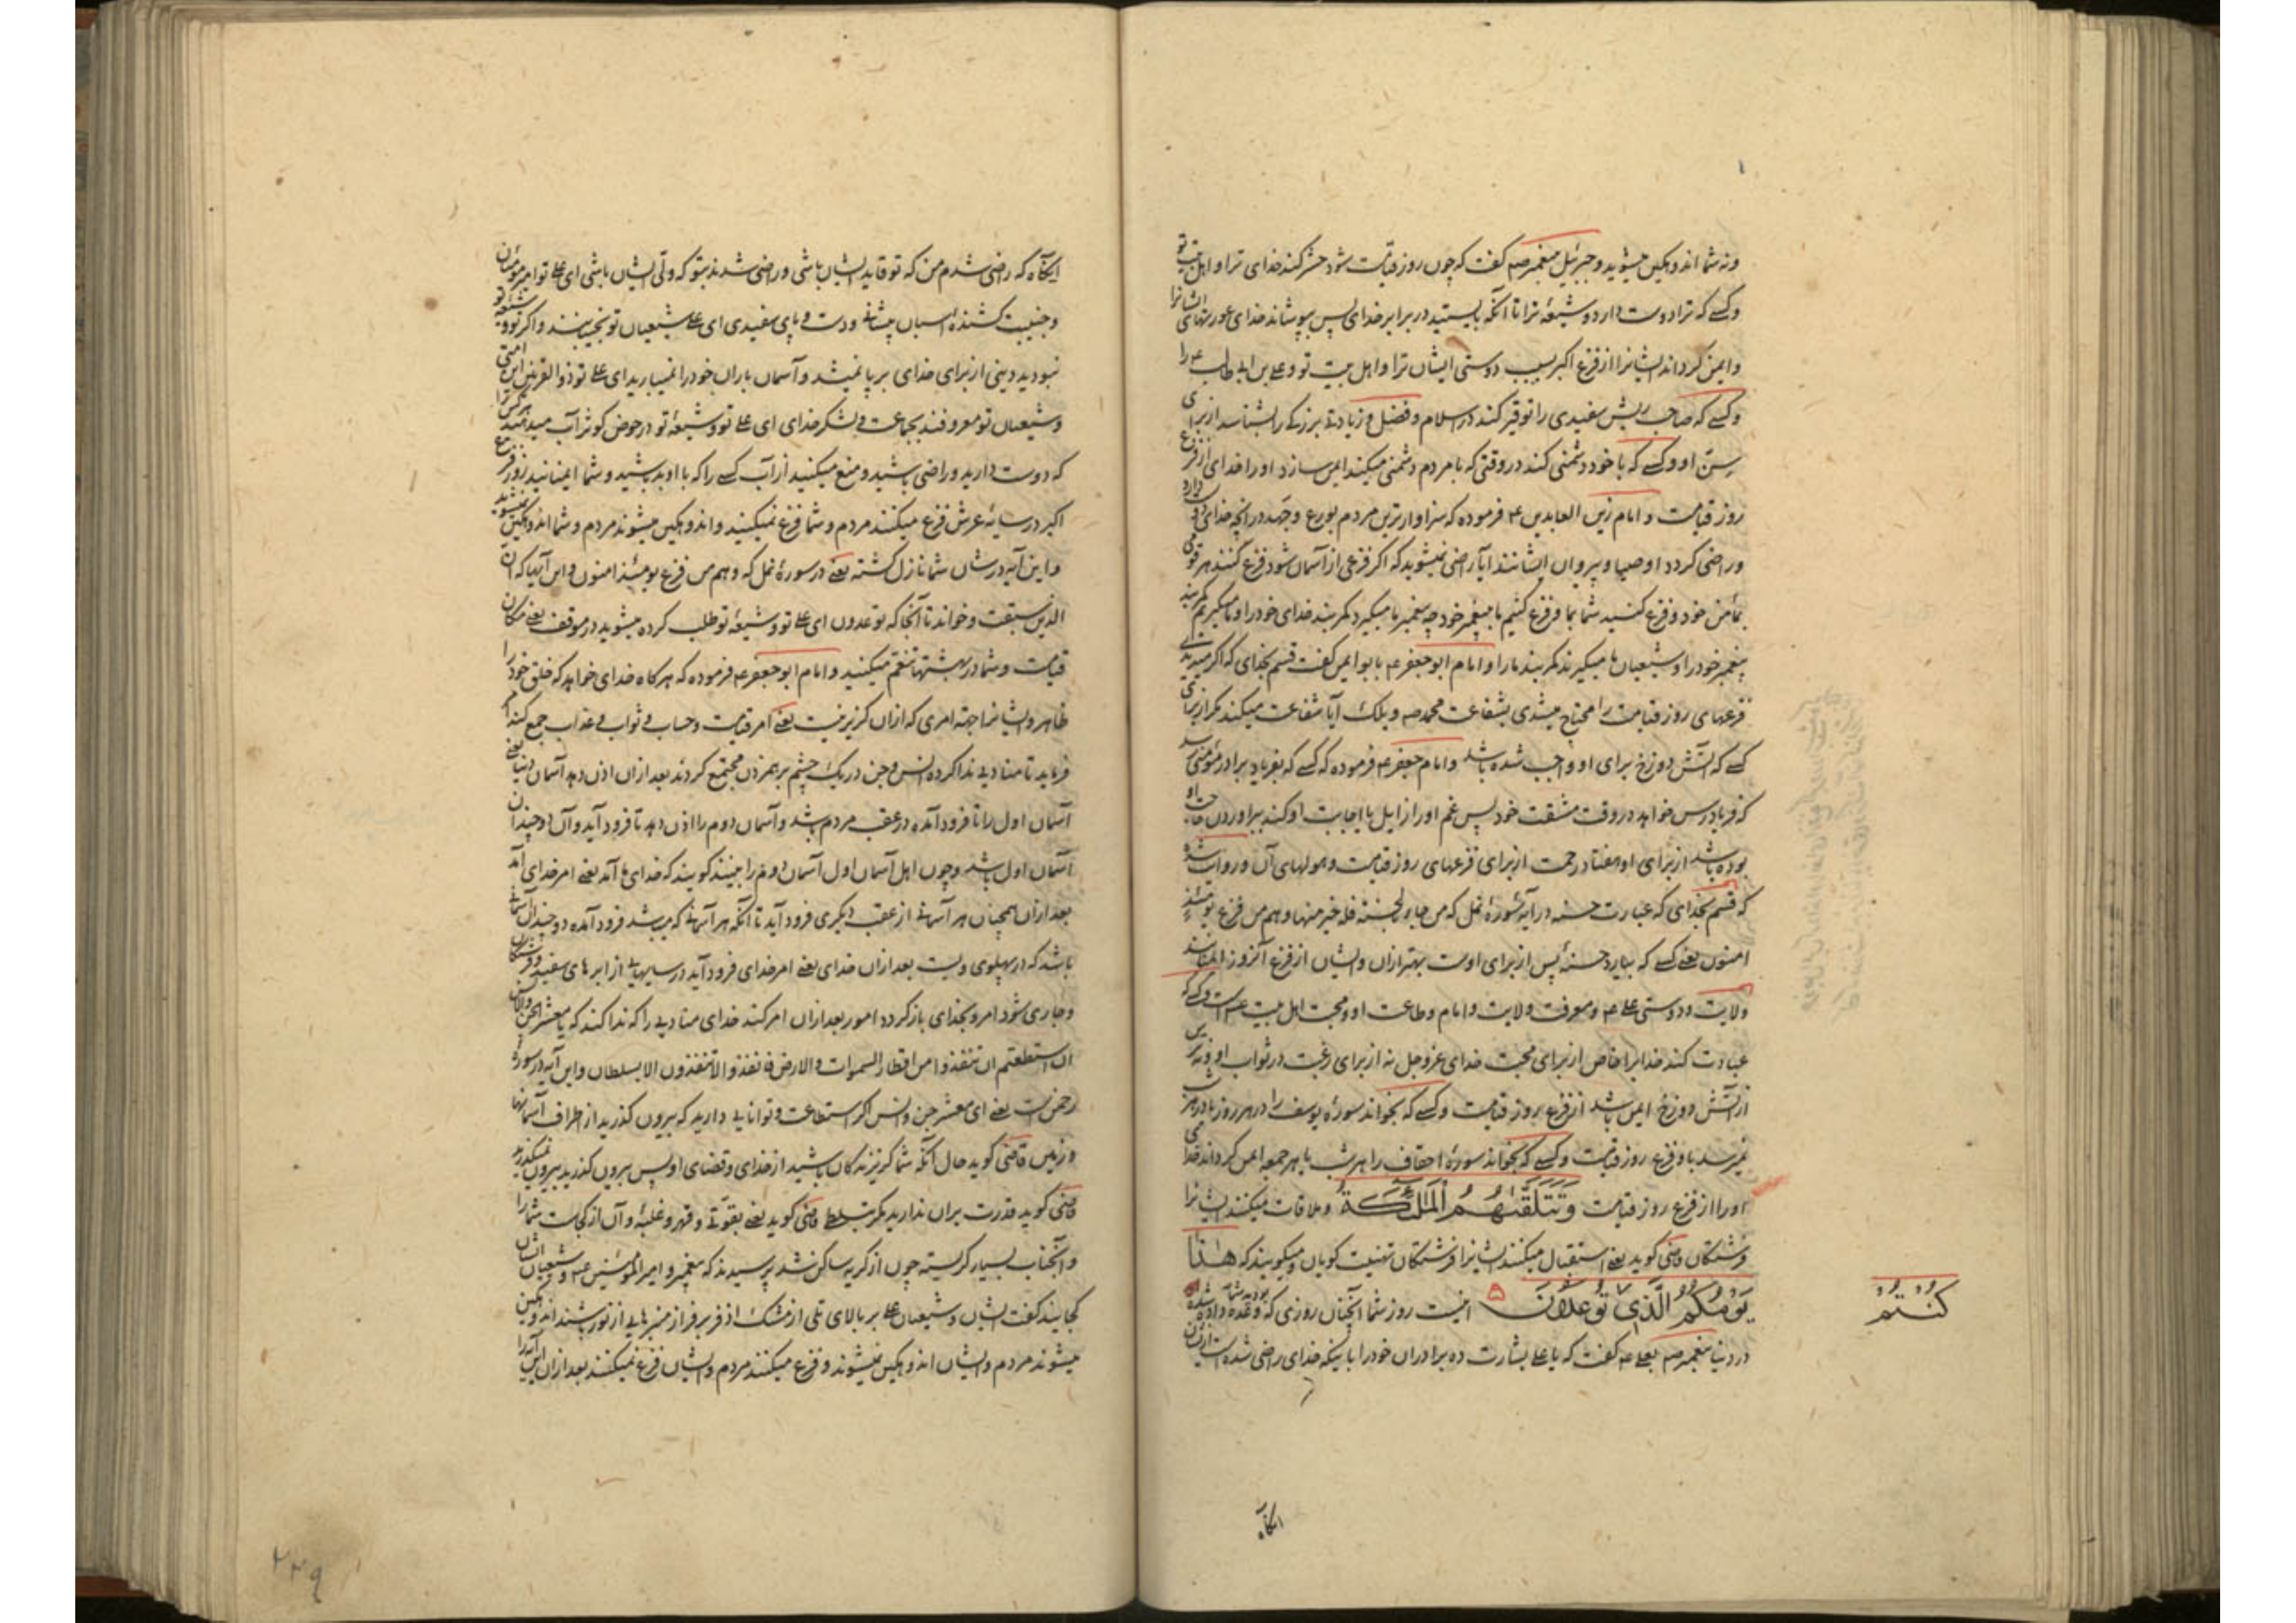 ونه شما اندوهکین میشوید و جبرئیل بپیغمبر صم کفت که چون روز قیامت شود حشر کند خدای ترا و اهل بیت تو
وکسے که ترا دوست دارد و شیعهٔ ترا تا آنکه بایستید در برابر خدای پس بپوشاند خدای عورتهای ایشانرا
وایمن کرداند ایشانرا از فزع اکبر بسبب دوستی ایشان ترا و اهل بیت تو و علے بن ابی طالب ع را
وکسے که صاحب ریش سفیدی را توقیر کند در اسلام و فضل و زیادتے بزرکے را بشناسد از برای
سن او وکسے که با خود دشمنی کند در وقتی که با مردم دشمنی میکند ایمن سازد او را خدای از فزع
روز قیامت و امام زین العابدین ع فرموده که سزاوارترین مردم بورع و جهد در آنچه خدای دوست دارد
وراضی کردد اوصیا و پیروان ایشانند ایا راضی نمیشوید که اکر فزعی از آسمان شود فزع کنند هر قومی
بمأمن خود و فزع کنید شما بما و فزع کنیم ما بپیغمبر خود چه پیغمبر ما میکیرد کمر بند خدای خود را و ما میکیریم کمربند
پیغمبر خود را و شیعیان ما میکیرند کمربند ما را و امام ابو جعفر ع بابو ایمن کفت قسم بخدای که اکر میدیدی
فزعهای روز قیامت را محتاج میشدی بشفاعت محمد صم ویلک آیا شفاعت میکند مکر از برای
کسے که آتش دوزخ برای او واجب شده باشد وامام جعفر ع فرموده که کسے که بفریاد برادر مؤمنی رسد
که فریادرس خواهد در وقت مشقت خود پس غم او را زایل یا اجابت او کند ببراوردن حاجت او
بوده باشد از برای او هفتاد رحمت از برای فزعهای روز قیامت و هولهای آن و روایت شده
که قسم بخدای که عبارت حسنه در آیهٔ سورهٔ نمل که من جاء بالحسنة فله خیر منها وهم من فزع یومئذ
امنون یعنے کسے که بیارد حسنه پس از برای اوست بهتر ازان و ایشان از فزع آنروز ایمنانند
ولایت و دوستی علے ع و معرفت ولایت و امام و طاعت او و محبت اهل بیت ع است و کسے که
عبادت کند خدایرا خاص از برای محبت خدای عزوجل نه از برای رغبت در ثواب او و نه ترس
از آتش دوزخ ایمن باشد از فزع روز قیامت وکسے که بخواند سورهٔ یوسف را در هر روز یا در هر شب
نمیرسد باو فزع روز قیامت وکسے که بخواند سورهٔ احقاف را هر شب یا هر جمعه ایمن کرداند خدای
او را از فزع روز قیامت وَتَتَلَقّٰىهُمُ الْمَلٰٓئِكَةُ وملاقات میکنند ایشانرا
فرشتکان قاضی کوید یعنے استقبال میکنند ایشانرا فرشتکان تهنیت کویان و میکویند که هٰذَا
يَوْمُكُمُ الَّذِي تُوعَدُونَ اینست روز شما آنچنان روزی که بودید شما که وعده داده شده اید
کُنْتُمْ
در دنیا پیغمبر صم بعلے ع کفت که یا علے بشارت ده برادران خود را باینکه خدای راضی شده است از ایشان
انکاه
انکاه که راضی شدم من که تو قاید ایشان باشی و راضی شدند بتو که ولی ایشان باشی ای علے تو امیر مومنان
وجنیبت کشنده اسبان پیشانی و دست و پای سفیدی ای علے شیعیان تو نجیبینند واکر تو و شیعهٔ تو
نبودید دینی از برای خدای بر پا نمیشد و آسمان باران خود را نمیبارید ای علے تو ذو القرنین این امتی
وشیعیان تو معروفند بجماعت و لشکر خدای ای علے تو و شیعهٔ تو در حوض کوثر آب میدهند هر کس را
که دوست دارید و راضی باشید و منع میکنید از آب کسے را که با او بد باشید و شما ایمنانید روز فزع
اکبر در سایهٔ عرش فزع میکنند مردم و شما فزع نمیکنید و اندوهکین میشوند مردم و شما اندوهکین نمیشوید
واین آیه در شان شما نازل کشته یعنے در سورهٔ نمل که وهم من فزع یومئذ امنون و این آیها که ان
الذین سبقت و خواند تا آنجا که توعدون ای علے تو و شیعهٔ تو طلب کرده میشوید در موقف یعنے مکان
قیامت و شما در بهشتها تنعّم میکنید و امام ابو جعفر ع فرموده که هر کاه خدای خواهد که خلق خود را
ظاهر و ایشانرا جهة امری که ازان کزیر نیست یعنے امر قیامت و حساب و ثواب و عذاب جمع کند امر
فرماید تا منادیی ندا کرده انس و جن در یک چشم برهمزدن مجتمع کردند بعد ازان اذن دهد آسمان دنیا یعنے
آسمان اول را تا فرود آمده در عقب مردم باشد و آسمان دوم را اذن دهد تا فرود آید و آن دو چندان
آسمان اول باشد و چون اهل آسمان اول آسمان دوم را بینند کویند که خدای ما آمد یعنے امر خدای آمد
بعد ازان همچنان هر آسمانے از عقب دیکری فرود آید تا آنکه هر آسمانے که میباشد فرود آمده دو چندان آسمانے
باشد که در پهلوی ویست بعد ازان خدای یعنے امر خدای فرود آید در سایهایے از ابرهای سفید و فرشتکان
وجاری شود امر و بخدای باز کردد امور بعد ازان امر کند خدای منادیی را که ندا کند که یا معشر الجن والانس
ان استطعتم ان تنفذوا من اقطار السموات والارض فانفذوا لا تنفذون الا بسلطان واین آیه در سورهٔ
رحمن است یعنے ای معشر جن و انس اکر استطاعت و توانایے دارید که بیرون کذرید از اطراف آسمانها
وزمین قاضی کوید حال آنکه شما کریزندکان باشید از خدای و قضای او پس بیرون کذرید بیرون نمیکذرید
قاضی کوید قدرت بران ندارید مکر بتسلطے قاضی کوید یعنے بقوتے و قهر و غلبهٔ و آن از کجاست شما را
وانجناب بسیار کریسته چون از کریه ساکن شد پرسیدند که پیغمبر و امیر المؤمنین ع و شیعیان ایشان
کجایند کفت ایشان و شیعیان علے بر بالای تلی از مشک اذفر بر فراز منبرهایے از نور باشند اندوهکین
میشوند مردم و ایشان اندوهکین نمیشوند و فزع میکنند مردم و ایشان فزع نمیکنند بعد ازان این آیه را
۲۲۹